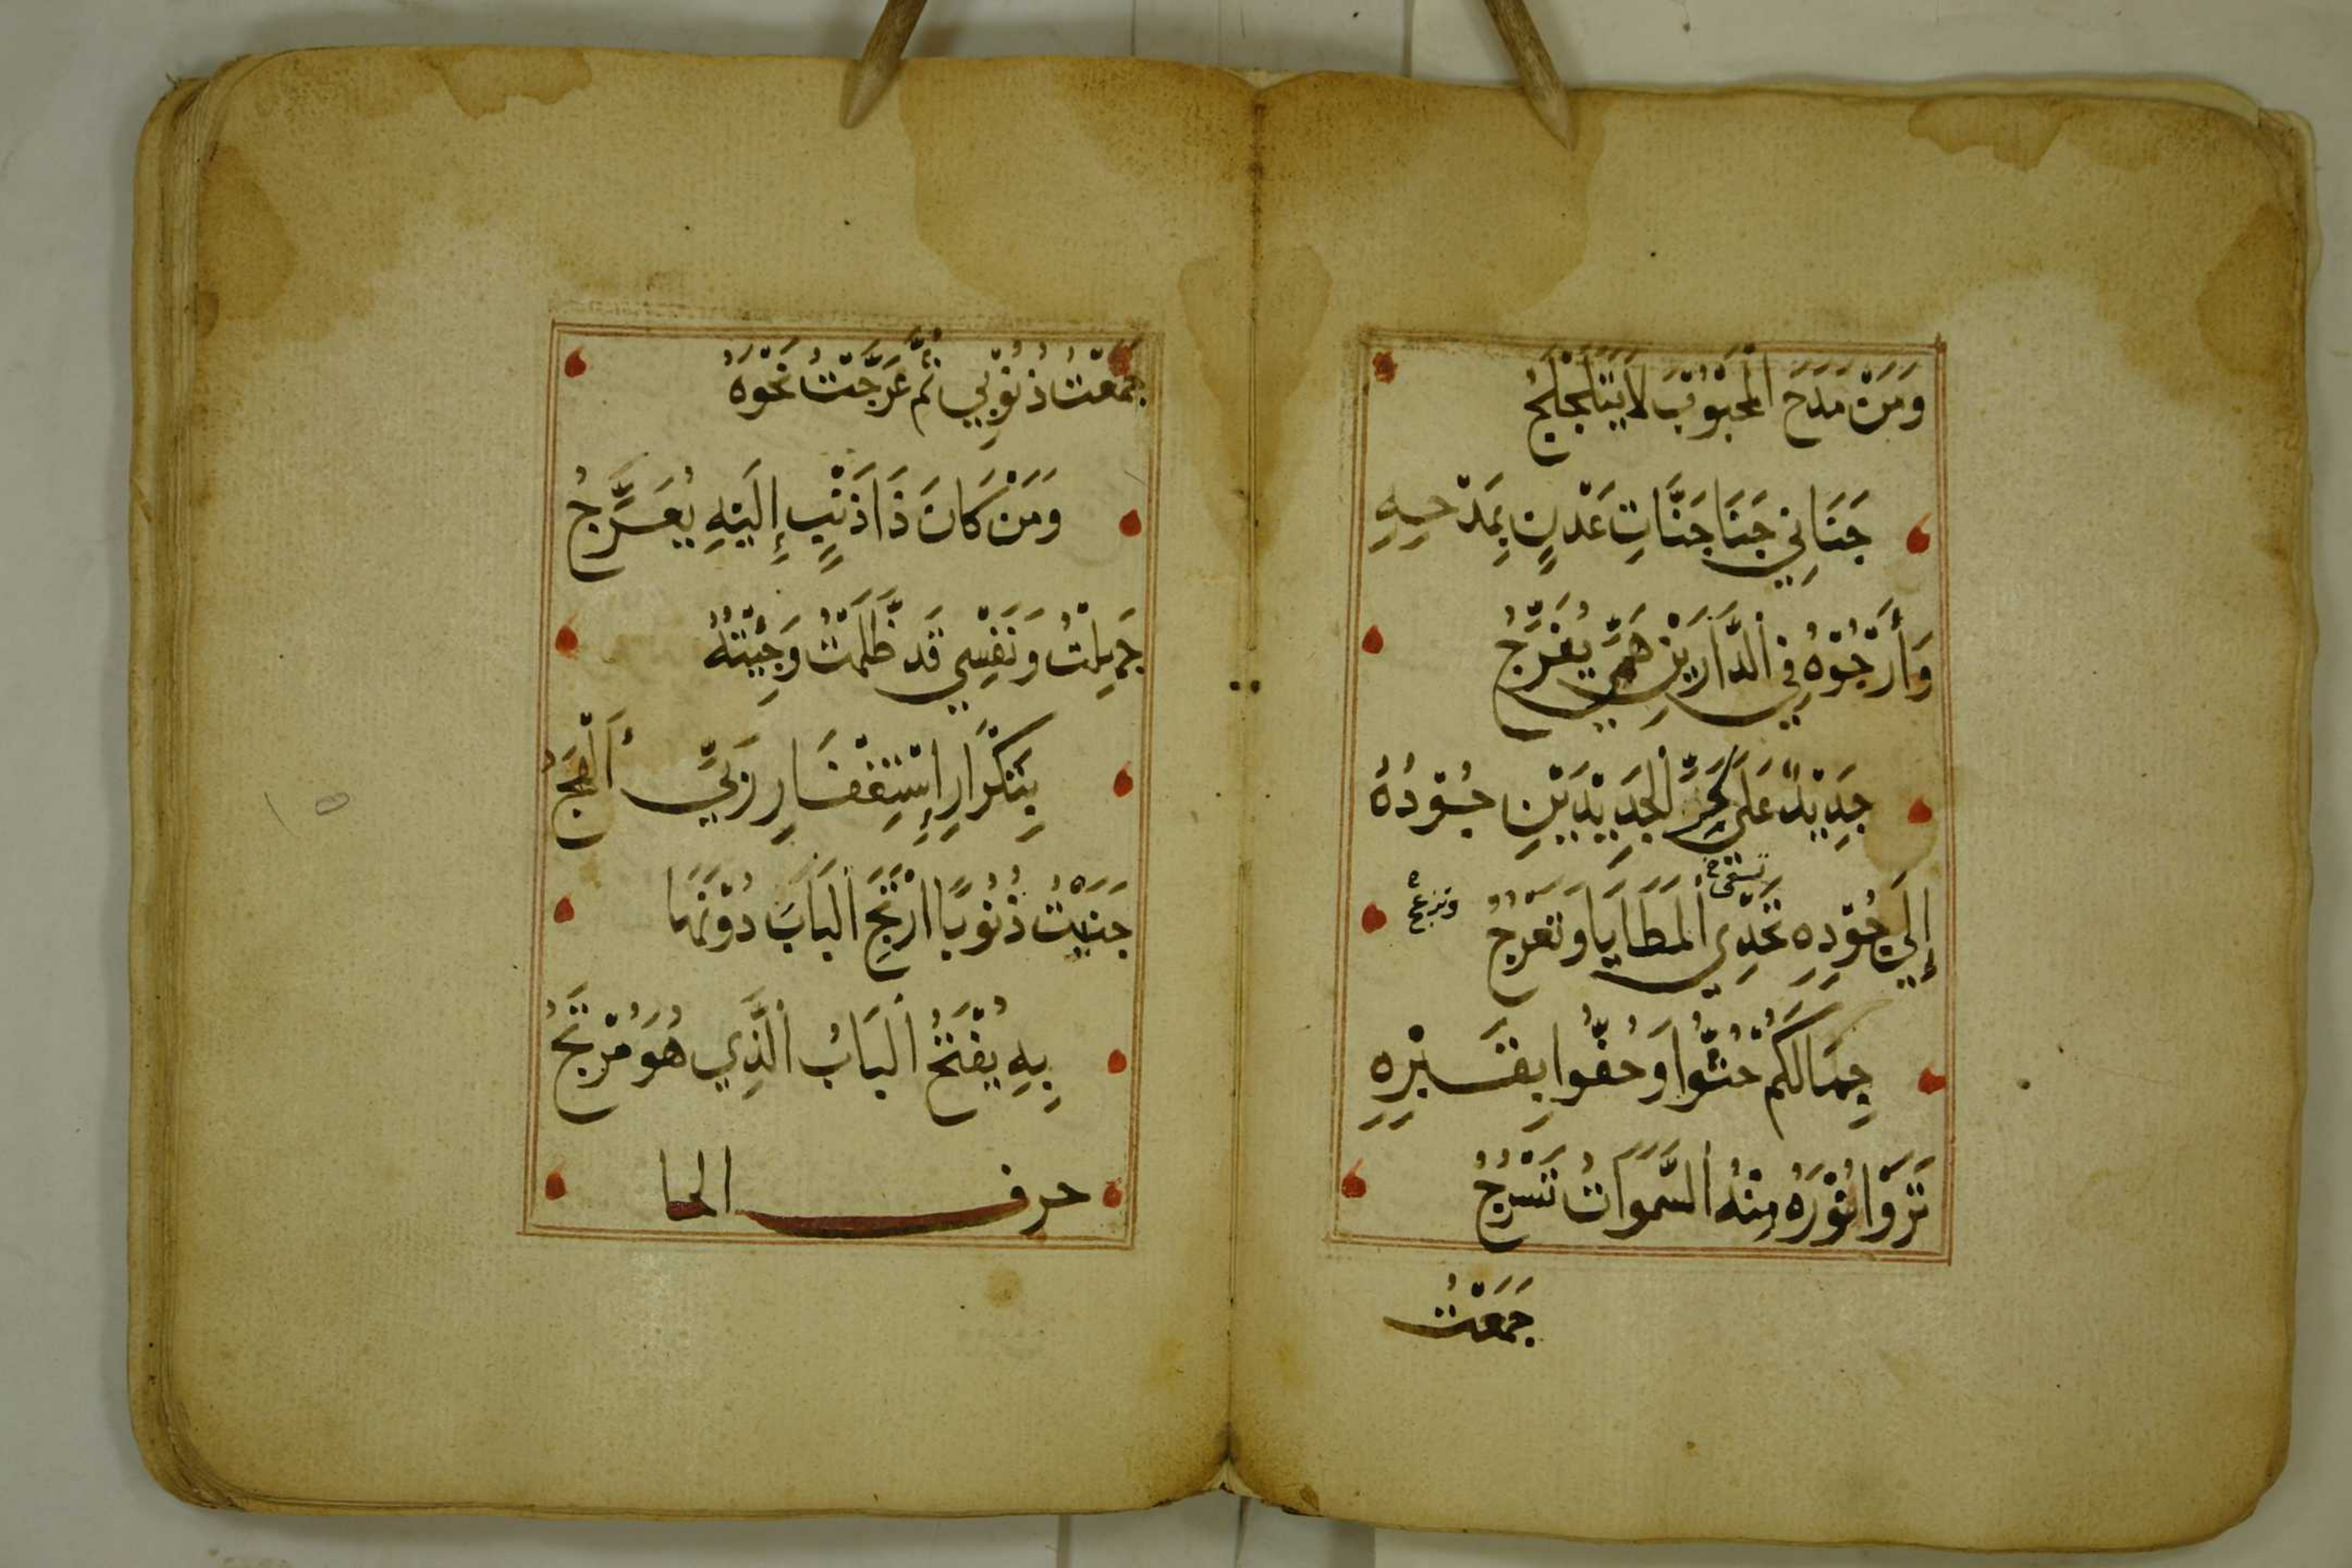 وَمَنْ مَدَحَ الْمَحْبُوْبَ لَا يَتَلَجْلَجُ
جَنَانِي جَنَا جَنَّاتِ عَدْنٍ بِمَدْحِهِ
وَأَرْجُوْهُ فِي الدَّارَيْنِ هَمِّي يُفَرِّجُ
جَدِيْدٌ عَلَى كَرِّ الْجَدِيْدَيْنِ جُوْدُهُ
إِلَى جُوْدِهِ نَحْدِي الْمَطَايَا وَنَعْرُجُ
جِمَالَكُمْ حُثُّوا وَحُفُّوا بِقَبْرِهِ
تَرَوْا نُوْرَهُ مِنْهُ السَّمَوَاتُ تُسْرَجُ
جَمَعْتُ
جَمَعْتُ ذُنُوْبِي ثُمَّ عَرَّجْتُ نَحْوَهُ
وَمَنْ كَانَ ذَا ذَنْبٍ إِلَيْهِ يُعَرِّجُ
جَهِلْتُ وَنَفْسِي قَد ظَّلَمْتُ وَجِئْتُهُ
بِتَكْرَارِ إِسْتِغْفَارِ رَبِّي أَلْهَجُ
جَنَيْتُ ذُنُوْبًا ارْتَجَ الْبَابَ دُوْنَهَا
بِهِ يُفْتَحُ الْبَابُ الَّذِي هُوَ مُرْتَجُ
حرف الحا